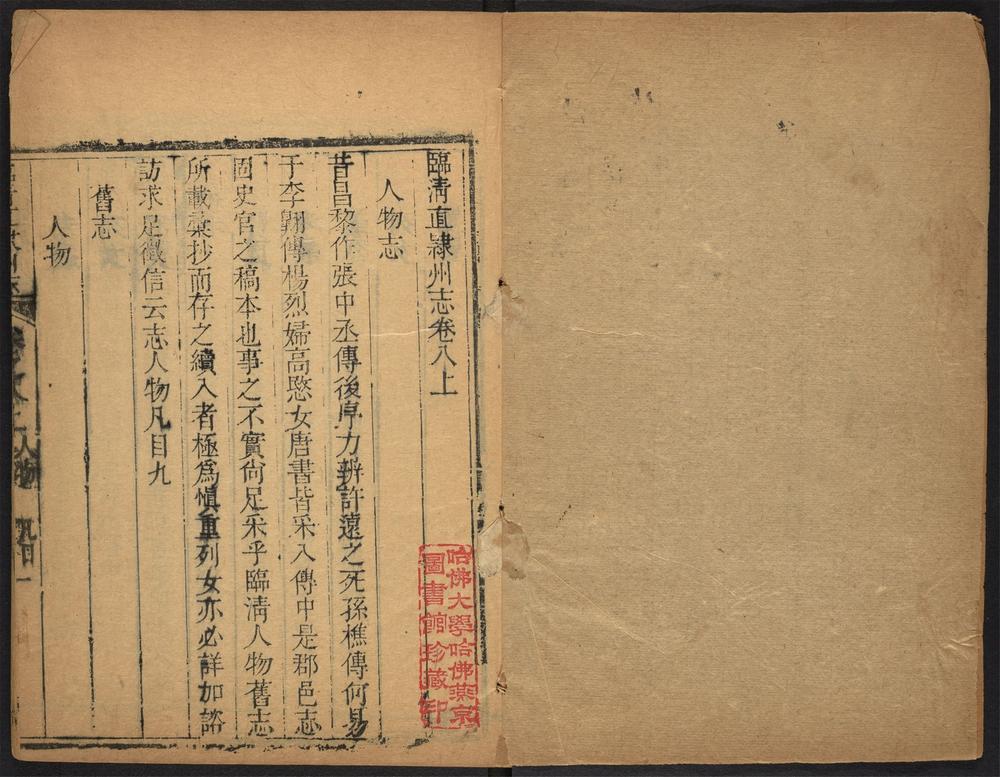 臨清直隸州志卷八上
人物志
昔昌黎作張中丞傳後序力辨許遠之死孫樵傳何易
于李翺傳楊烈婦高愍女唐書皆采入傳中是郡邑志
固史官之稿本也事之不實尙足采乎臨淸人物舊志
所載彙抄而存之續入者極爲愼重列女亦必詳加諮
訪求足徵信云志人物凡目九
舊志
人物
人物
凡目一
哈佛大學哈佛燕京
圖書館珍藏印